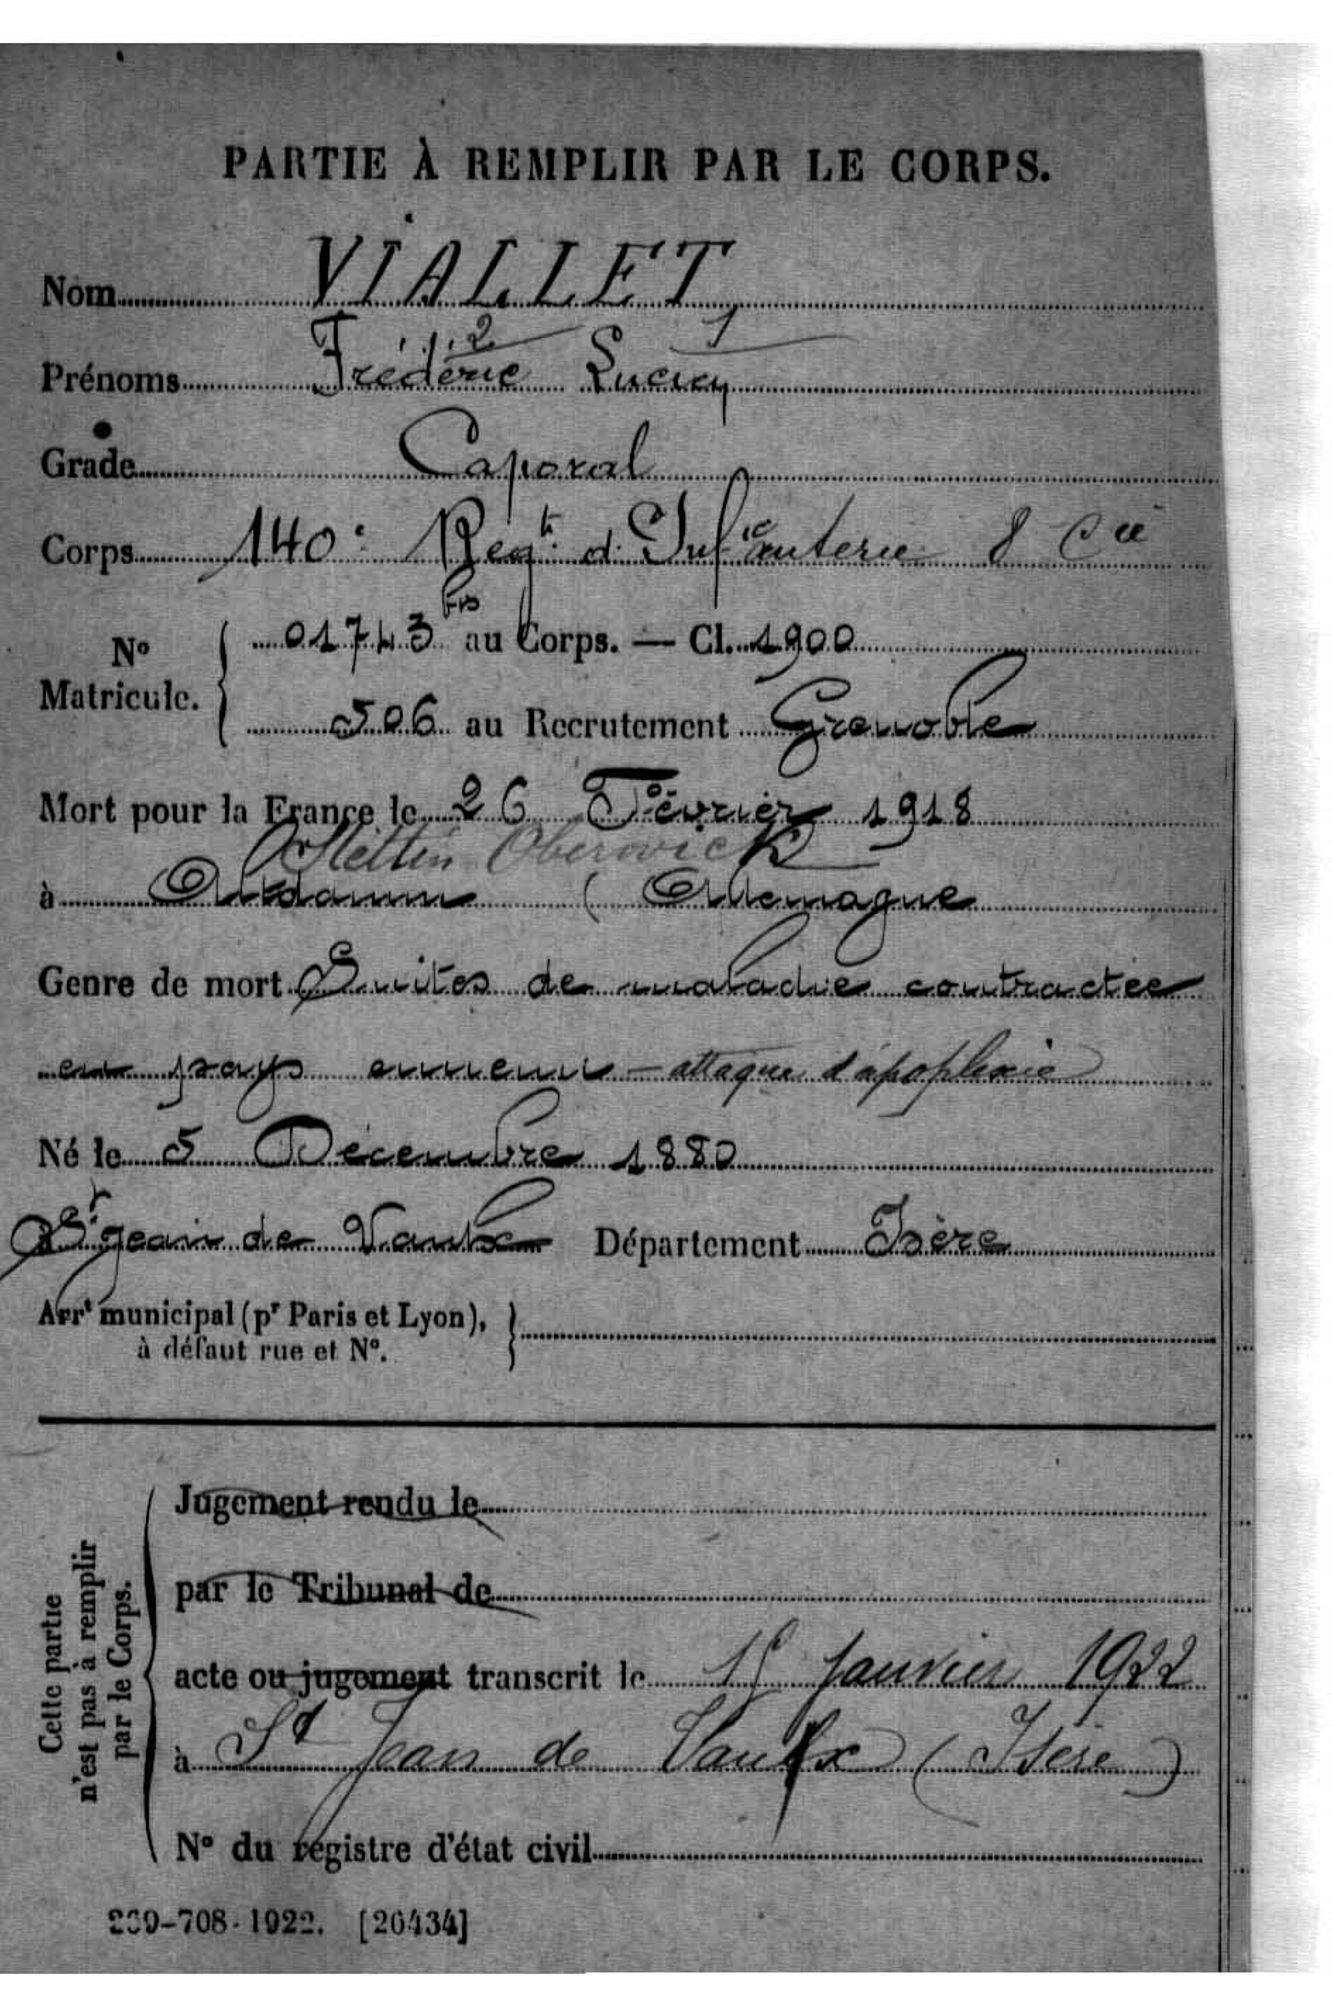 PARTIE À REMPLIR PAR LE CORPS.
Nom VIALLET
2 1
Prénoms Frédéric Lucien
Grade Caporal
Corps 140e Regt d'Infanterie 8 Cie
No Matricule. { 01743 bis au Corps. — Cl. 1900
506 au Recrutement Grenoble
Mort pour la France le 26 Février 1918
Stettin
à Altdamm (Allemagne
Genre de mort Suites de maladie contractée
en pays ennemi - attaque d'apoplexie
Né le 5 Décembre 1880
à St Jean de Vaulx Département Isère
Arrt municipal (pr Paris et Lyon), }
à défaut rue et No.
Cette partie
n'est pas à remplir
par le Corps.
Jugement rendu le
par le Tribunal de
acte ou jugement transcrit le 15 Janvier 1922
à St Jean de Vaulx (Isère)
No du registre d'état civil
239-708-1922. [26434]